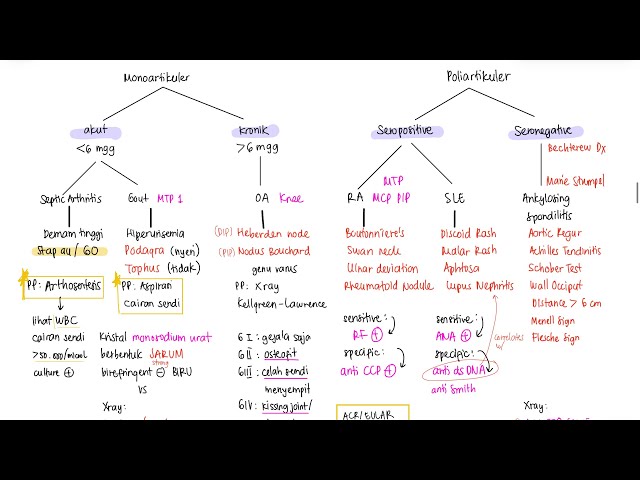 Monoartikuler
akut
<6 mgg
kronik
>6 mgg
Septic Arthritis
Demam tinggi
Stap au / GO
PP: Arthosentesis
lihat WBC
cairan sendi
>50.000/mcal
culture +
Xray:
Gout MTP 1
Hiperurisemia
Podagra (nyeri)
Tophus (tidak)
PP: Aspirasi
cairan sendi
Kristal monorodium urat
berbentuk JARUM
strong
birefringent - BIRU
VS
OA Knee
(DIP) Heberden node
(PIP) Nodus Bouchard
genu varus
PP: Xray
Kellgreen-Lawrence
G I : gejala saja
G II : osteofit
G III : celah sendi
menyempit
G IV : kissing joint/
Poliartikuler
Seropositive
Seronegative
MTP
RA MCP PIP
Boutonniere's
Swan neck
Ulnar deviation
Rheumatoid Nodule
sensitive:
RF +
specific:
anti CCP +
ACR/EULAR
SLE
Discoid Rash
Malar Rash
Aphtosa
Lupus Nephritis
sensitive:
ANA +
specific:
anti ds DNA
anti Smith
correlates
Bechterew Dx
Marie Strumpel
Ankylosing
Spondilitis
Aortic Regur
Achilles Tendinitis
Schober Test
Wall Occiput
Distance > 6 cm
Menell Sign
Flesche Sign
Xray: